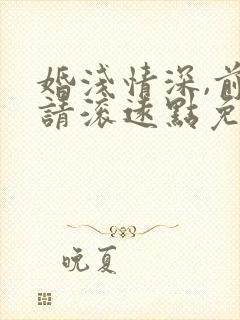 婚淺情深,前
請滾遠點免
晚夏